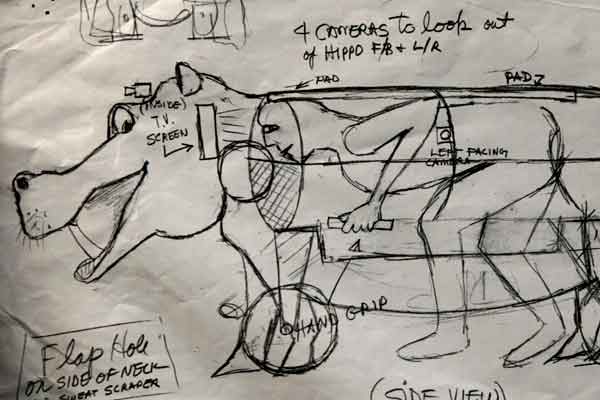 4 CAMERAS to look out
of HIPPO F/B + L/R
PAD
PAD
(INSIDE)
T.V.
SCREEN
LEFT FACING
CAMERA
HAND GRIP
Flap Hole
ON SIDE OF NECK
SWEAT SCRAPER
(SIDE VIEW)